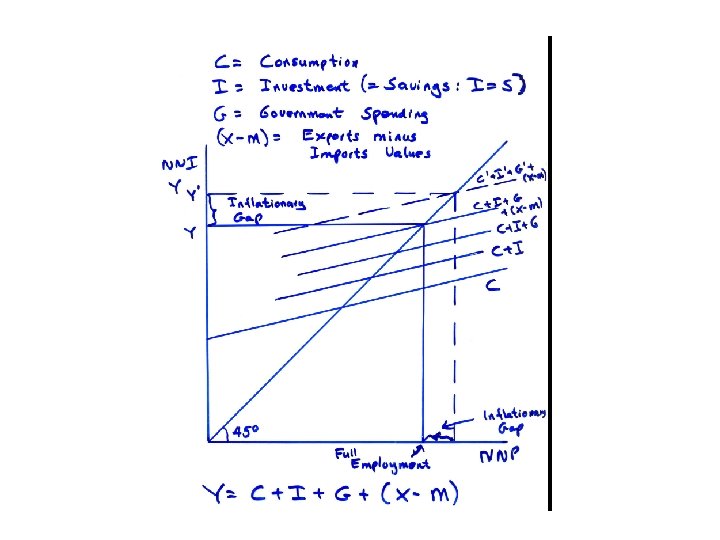 C = Consumption
I = Investment (= Savings : I = S)
G = Government Spending
(X-M) = Exports minus
Imports Values
NNI
Y
Y'
Inflationary
Gap
C'+I'+G'+
(X-M)
C+I+G
+(X-M)
Y
C+I+G
C+I
C
45°
Inflationary
Gap
Full
Employment
NNP
Y = C + I + G + (X - M)